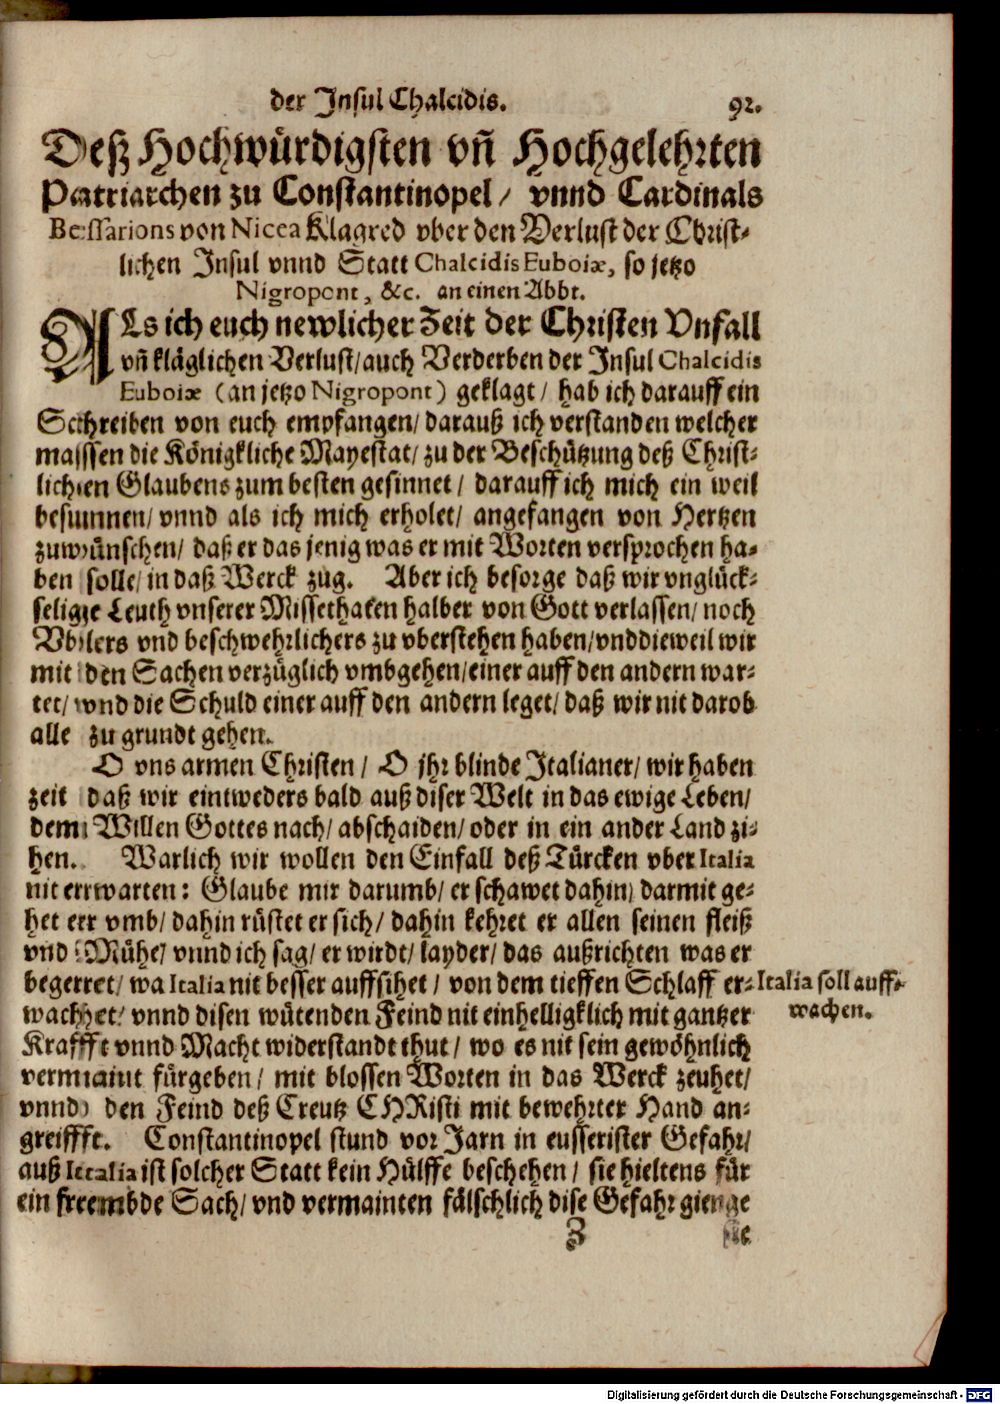 der Insul Chalcidis. 92.
Deß Hochwürdigsten vñ Hochgelehrten
Patriarchen zu Constantinopel/ vnnd Cardinals
Bessarions von Nicea Klagred vber den Verlust der Christ-
lichen Insul vnnd Statt Chalcidis Euboiæ, so jetzo
Nigropont, &c. an einen Abbt.
ALs ich euch newlicher Zeit der Christen Vnfall
vñ kläglichen Verlust/ auch Verderben der Insul Chalcidis
Euboiæ (an jetzo Nigropont) geklagt/ hab ich darauff ein
Schreiben von euch empfangen/ darauß ich verstanden welcher
massen die Königkliche Mayestat/ zu der Beschützung deß Christ-
lichen Glaubens zum besten gesinnet/ darauff ich mich ein weil
besunnen/ vnnd als ich mich erholet/ angefangen von Hertzen
zuwünschen/ daß er das jenig was er mit Worten versprochen ha-
ben solle/ in daß Werck züg. Aber ich besorge daß wir vnglück-
selige Leuth vnserer Missethaten halber von Gott verlassen/ noch
Vblers vnd beschwehrlichers zu vberstehen haben/ vnd dieweil wir
mit den Sachen verzüglich vmbgehen/ einer auff den andern war-
tet/ vnd die Schuld einer auff den andern leget/ daß wir nit darob
alle zu grundt gehen.
O vns armen Christen/ O jhr blinde Italianer/ wir haben
zeit daß wir eintweders bald auß diser Welt in das ewige Leben/
dem Willen Gottes nach/ abschaiden/ oder in ein ander Land zi-
hen. Warlich wir wollen den Einfall deß Türcken vber Italia
nit erwarten: Glaube mir darumb/ er schawet dahin/ darmit ge-
het er vmb/ dahin rüstet er sich/ dahin kehret er allen seinen fleiß
vnd Mühe/ vnnd ich sag/ er wirdt/ layder/ das außrichten was er
begerret/ wa Italia nit besser auffsihet/ von dem tieffen Schlaff er-
Italia soll auff-
wachen.
wachet/ vnnd disen wütenden Feind nit einhelligklich mit gantzer
Krafft vnnd Macht widerstandt thut/ wo es nit sein gewöhnlich
vermaint fürgeben/ mit blossen Worten in das Werck zeuhet/
vnnd den Feind deß Creutz CHRisti mit bewehrter Hand an-
greifft. Constantinopel stund vor Jarn in eusserister Gefahr/
auß Italia ist solcher Statt kein Hülffe beschehen/ sie hieltens für
ein frembde Sach/ vnd vermainten fälschlich dise Gefahr gienge
Z sie
Digitalisierung gefördert durch die Deutsche Forschungsgemeinschaft - DFG